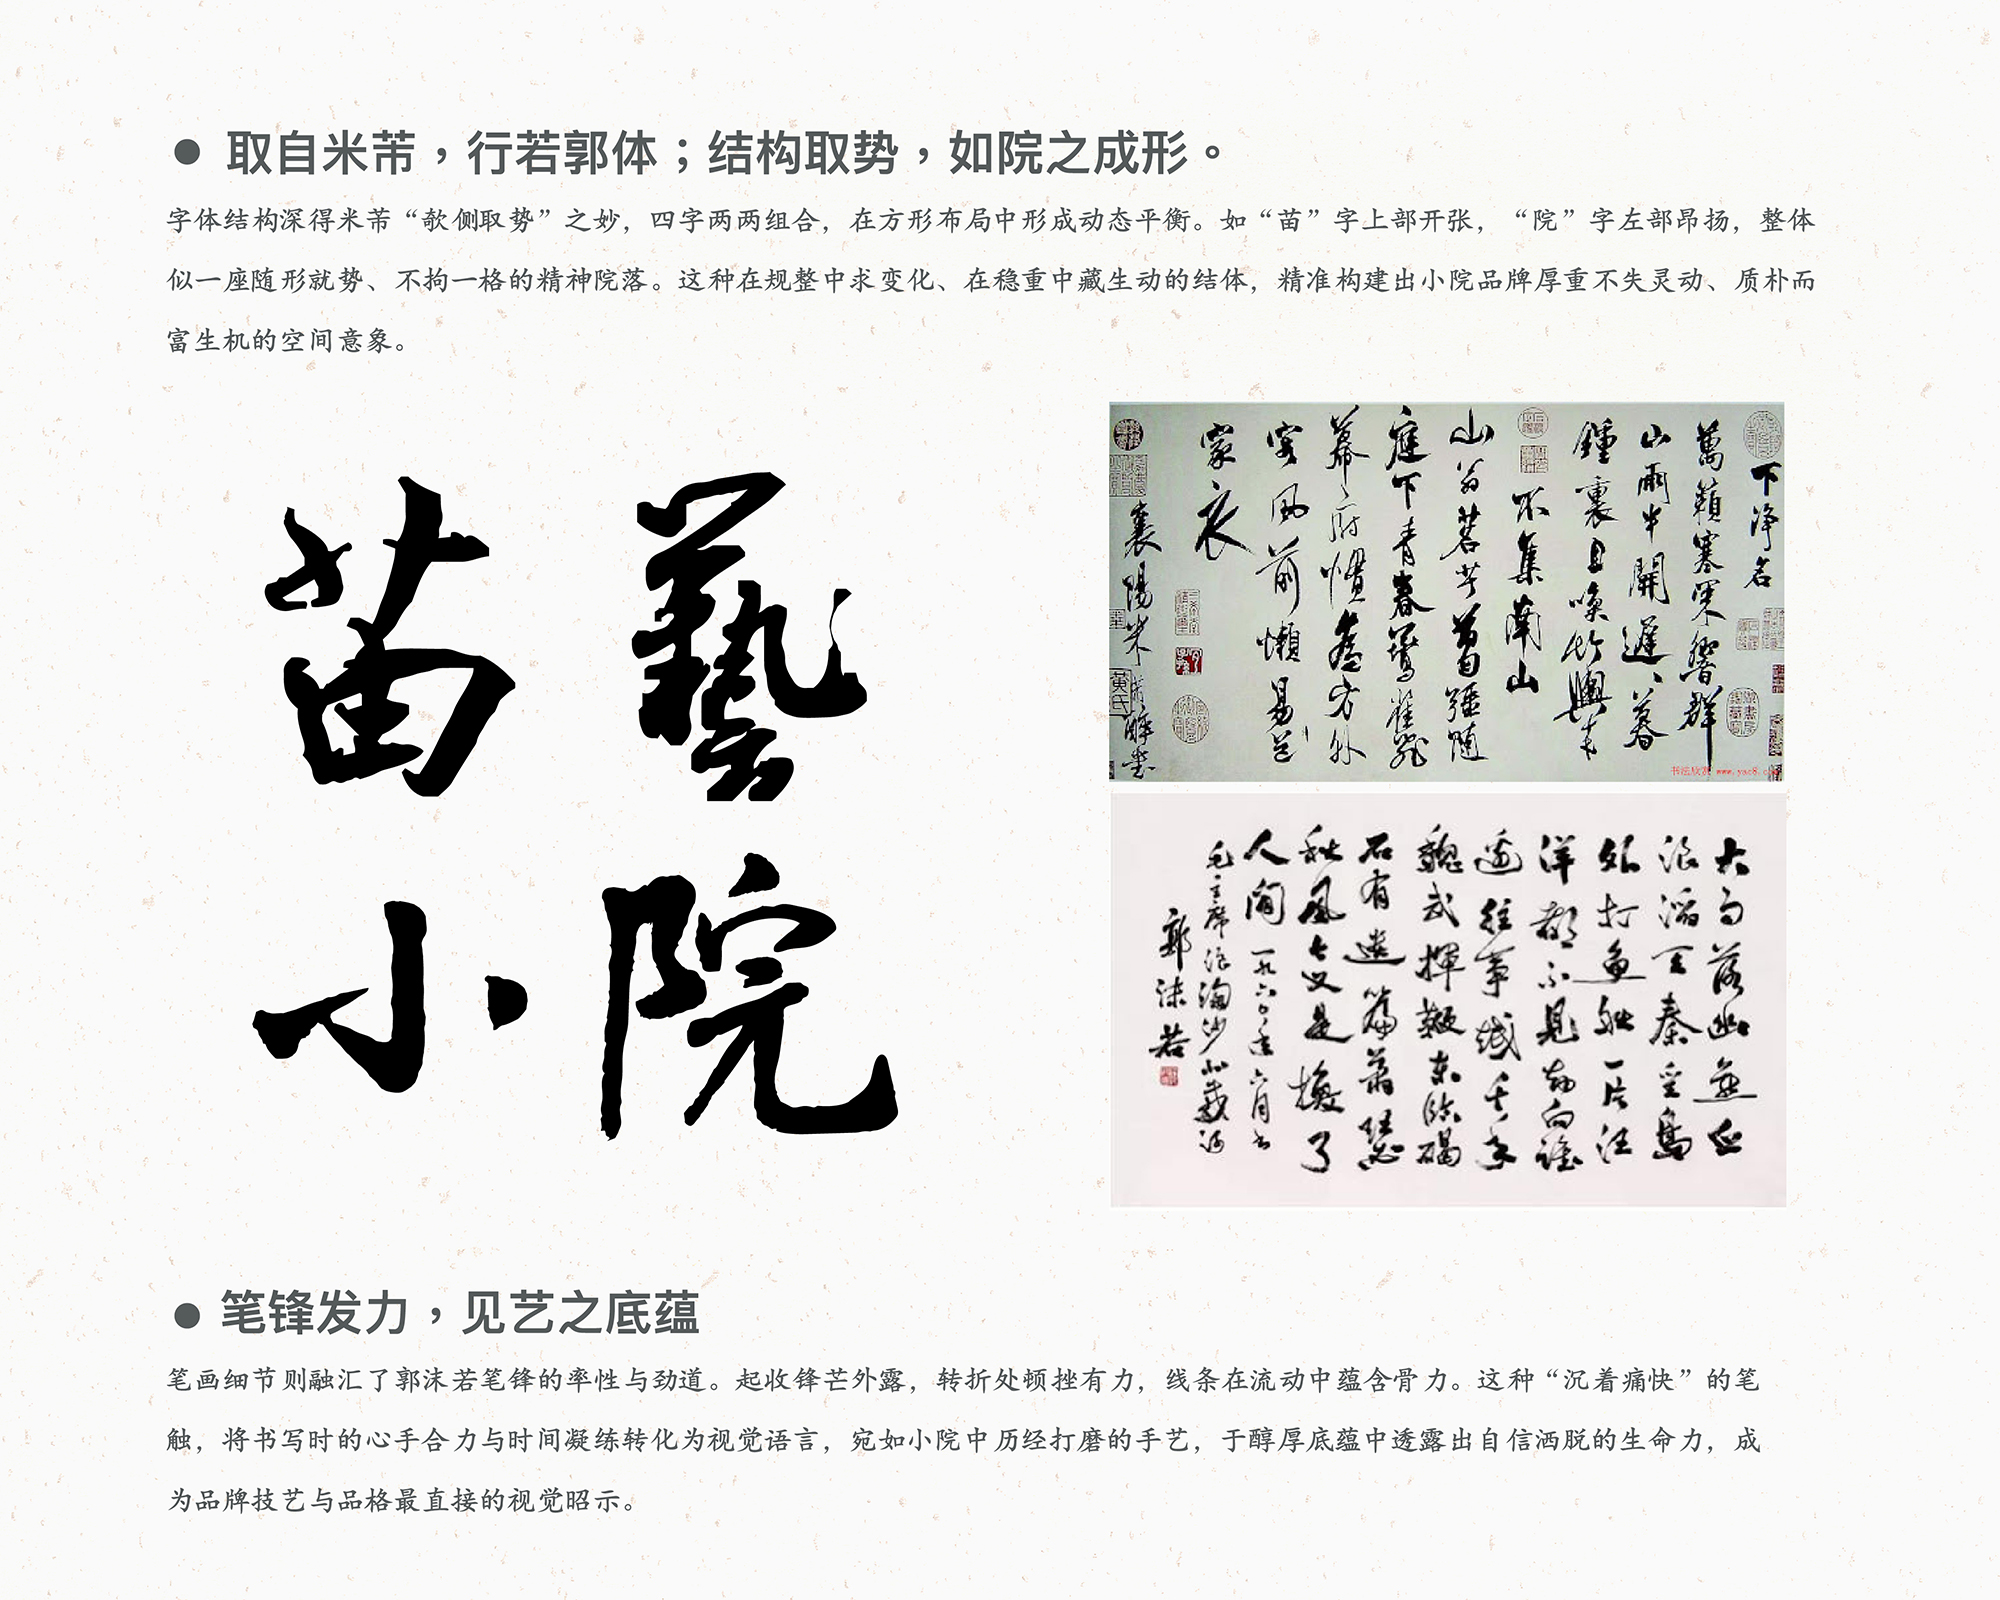 ● 取自米芾，行若郭体；结构取势，如院之成形。
字体结构深得米芾“欹侧取势”之妙，四字两两组合，在方形布局中形成动态平衡。如“苗”字上部开张，“院”字左部昂扬，整体
似一座随形就势、不拘一格的精神院落。这种在规整中求变化、在稳重中藏生动的结体，精准构建出小院品牌厚重不失灵动、质朴而
富生机的空间意象。
苗藝
小院
下净名
萬籟寒
山雨半開遲
鍾裏自喚竹輿
不集南山
山翁茗
庭下青春
幕府
客風前懶易
家衣
襄陽米芾
书法欣赏 www.yac8.com
大雨落幽燕白
浪滔天秦皇島
外打魚船一片汪
洋都不見知向誰
邊往事越千年
魏武揮鞭東臨碣
石有遺篇蕭瑟
秋風今又是換了
人間 一九六
毛主席
郭沫若
● 笔锋发力，见艺之底蕴
笔画细节则融汇了郭沫若笔锋的率性与劲道。起收锋芒外露，转折处顿挫有力，线条在流动中蕴含骨力。这种“沉着痛快”的笔
触，将书写时的心手合力与时间凝练转化为视觉语言，宛如小院中历经打磨的手艺，于醇厚底蕴中透露出自信洒脱的生命力，成
为品牌技艺与品格最直接的视觉昭示。